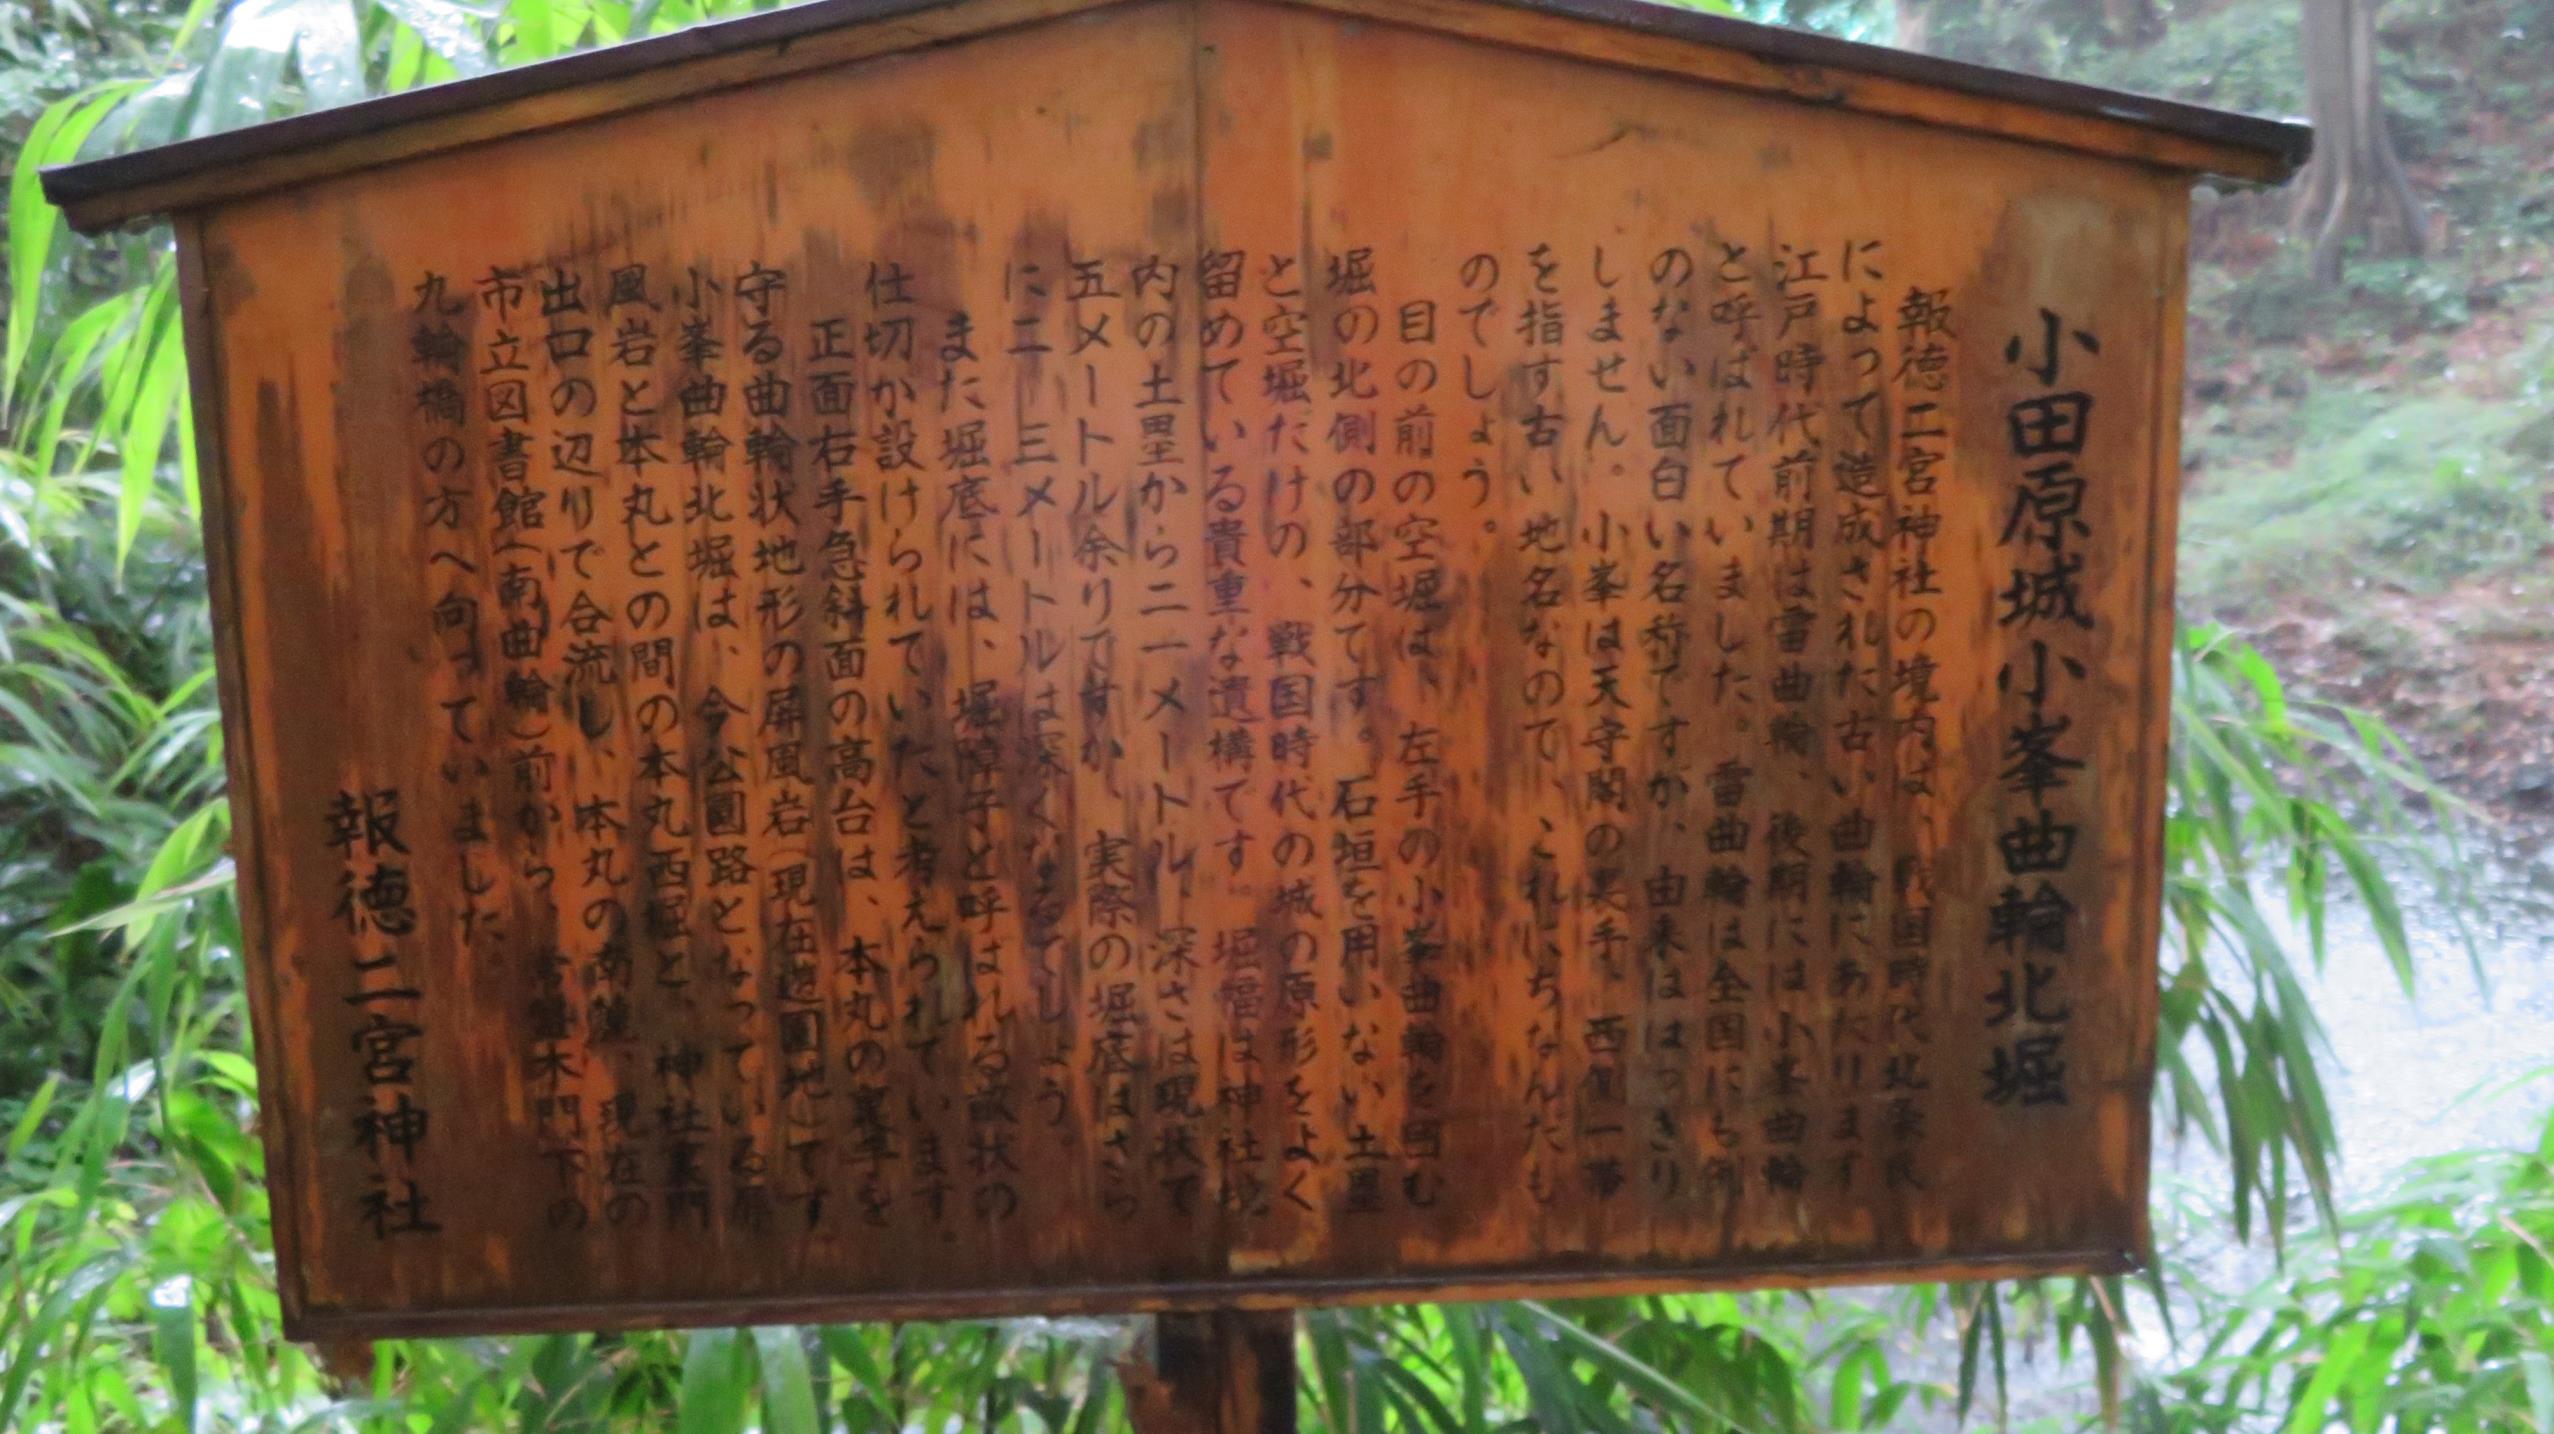 小田原城小峯曲輪北堀
報徳二宮神社の境内は、戦国時代北条氏
によって造成された古い曲輪にあたります
江戸時代前期は雷曲輪、後期には小峯曲輪
と呼ばれていました。雷曲輪は全国にも例
のない面白い名称ですが、由来ははっきり
しません。小峯は天守閣の裏手、西側一帯
を指す古い地名なので、これにちなんだも
のでしょう。
目の前の空堀は、左手の小峯曲輪を囲む
堀の北側の部分です。石垣を用いない土塁
と空堀だけの、戦国時代の城の原形をよく
留めている貴重な遺構です。堀幅は神社境
内の土塁から二一メートル、深さは現状で
五メートル余りですが、実際の堀底はさら
に二－三メートルは深くなるでしょう。
また堀底には、堀障子と呼ばれる畝状の
仕切が設けられていたと考えられています。
正面右手急斜面の高台は、本丸の裏手を
守る曲輪状地形の屏風岩（現在遊園地）です
小峯曲輪北堀は、今公園路となっている屏
風岩と本丸との間の本丸西堀と、神社裏門
出口の辺りで合流し、本丸の南麓、現在の
市立図書館（南曲輪）前から、常盤木門下の
九輪橋の方へ向っていました。
報徳二宮神社